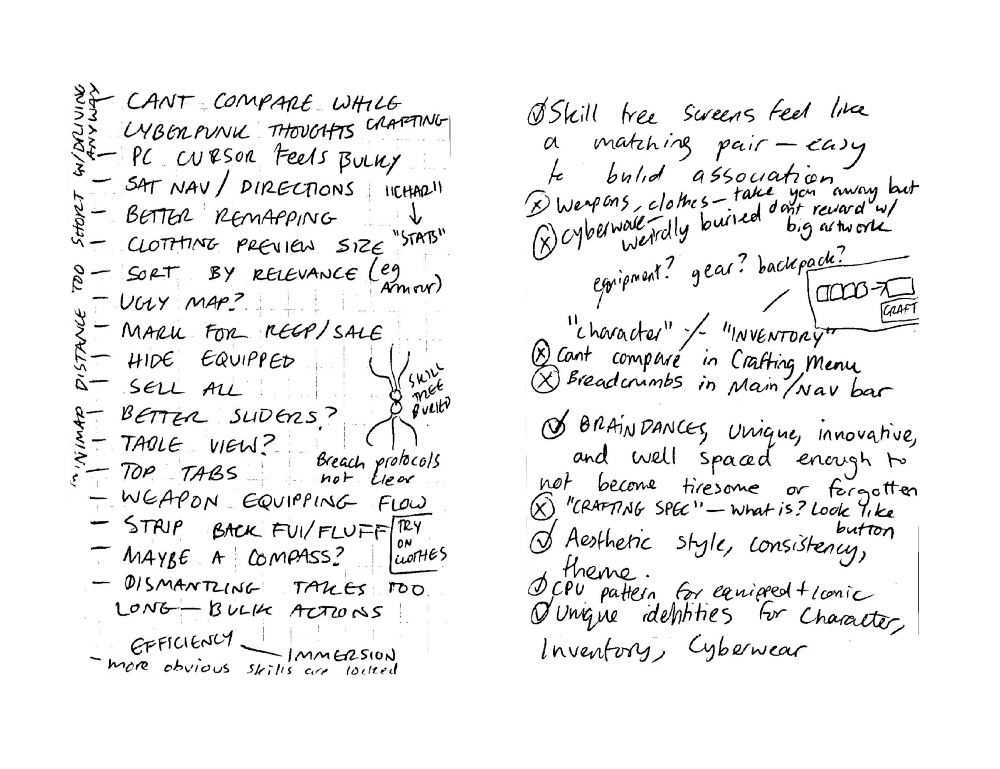 MINIMAP DISTANCE TOO SHORT W/DRIVING
ANYWAY
— CANT COMPARE WHILE
CRAFTING
CYBERPUNK THOUGHTS
— PC CURSOR Feels BULKY
— SAT NAV / DIRECTIONS
— BETTER REMAPPING
— CLOTHING PREVIEW SIZE
"CHAR"
↓
"STATS"
— SORT BY RELEVANCE (eg
Armour)
— UGLY MAP?
— MARK FOR KEEP/SALE
— HIDE EQUIPPED
— SELL ALL
— BETTER SLIDERS?
— TABLE VIEW?
— TOP TABS
SKILL
TREE
BURIED
Breach protocols
not clear
— WEAPON EQUIPPING FLOW
— STRIP BACK FUI/FLUFF
— MAYBE A COMPASS?
TRY
ON
CLOTHES
— DISMANTLING TAKES TOO
LONG — BULK ACTIONS
EFFICIENCY — IMMERSION
— more obvious skills are locked
Skill tree screens feel like
a matching pair — easy
to build association
Weapons, clothes — take you away but
dont reward w/
big artwork
Cyberware —
weirdly buried
equipment? gear? backpack?
CRAFT
"character" -/- "INVENTORY"
Cant compare in Crafting Menu
Breadcrumbs in Main/Nav bar
BRAINDANCES, unique, innovative,
and well spaced enough to
not become tiresome or forgotten
"CRAFTING SPEC" — what is? Look like
button
Aesthetic style, consistency,
theme.
CPU pattern for equipped + Iconic
Unique identities for Character,
Inventory, Cyberwear